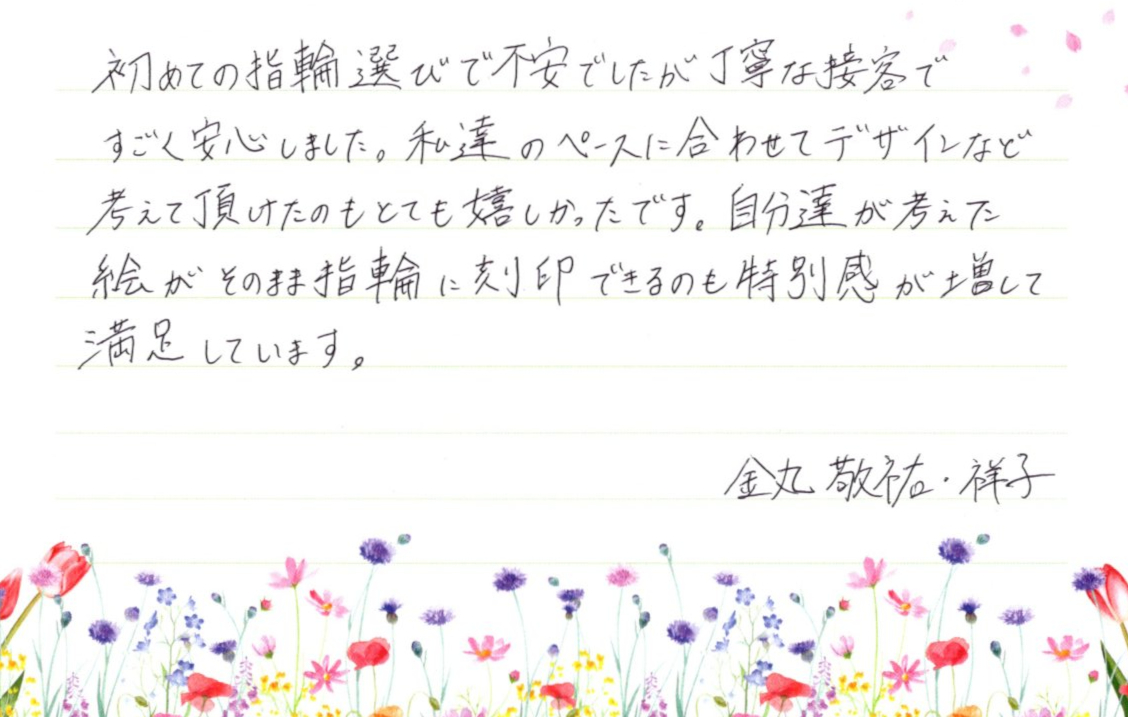 初めての指輪選びで不安でしたが丁寧な接客で
すごく安心しました。私達のペースに合わせてデザインなど
考えて頂けたのもとても嬉しかったです。自分達が考えた
絵がそのまま指輪に刻印できるのも特別感が増して
満足しています。
金丸 敬祐・祥子